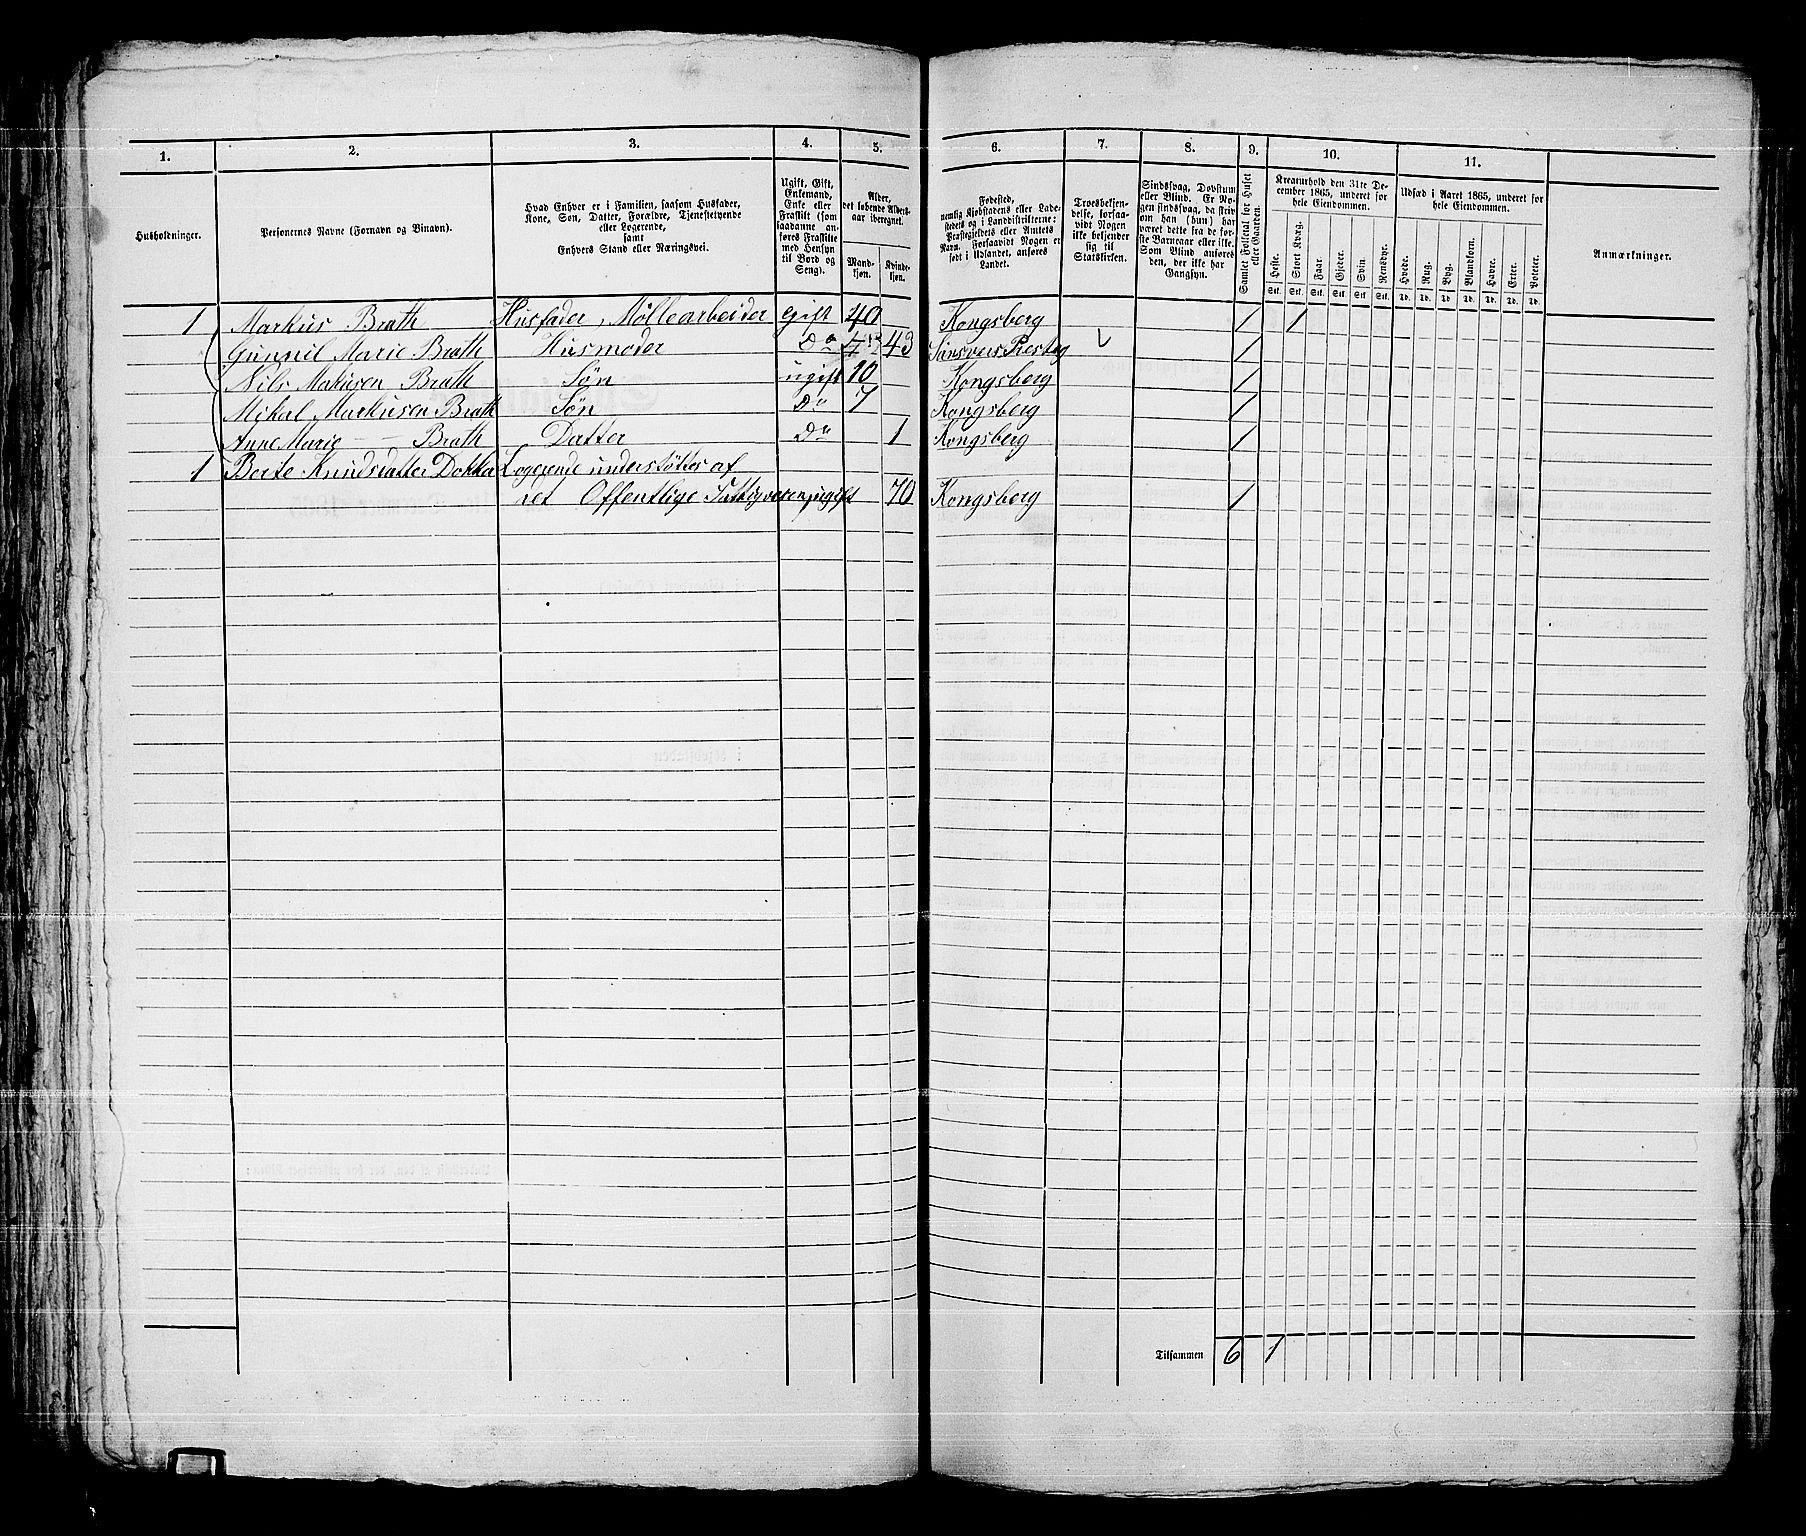 1. 2. 3. 4. 5. 6. 7. 8. 9. 10. 11.
Husholdninger.
Personernes Navne (Fornavn og Binavn).
Hvad Enhver er i Familien, saasom Husfader,
Kone, Søn, Datter, Forældre, Tjenestetyende
eller Logerende,
samt
Enhvers Stand eller Næringsvei.
Ugift, Gift,
Enkemand,
Enke eller
Fraskilt (som
saadanne anføres
Fraskilte
med Hensyn
til Bord og
Seng).
Alder,
det løbende Aldersaar
iberegnet.
Mandkjøn.
Kvindekjøn.
Fødested,
nemlig Kjøbstadens eller Ladestedets
og i Landdistrikterne:
Præstegjeldets eller Amtets
Navn. Forsaavidt Nogen er
født i Udlandet, anføres
Landet.
Troesbekjendelse,
forsaavidt
Nogen
ikke bekjender
sig til
Statskirken.
Sindssvag, Døvstum
eller Blind. Er Nogen
sindssvag, da skrives
om han (hun) har
været dette fra de første
Barneaar eller ikke.
Som Blind anføres
den, der ikke har
Gangsyn.
Samlet Folketal for Huset
eller Gaarden.
Kreaturhold den 31te December
1865, underet for
hele Eiendommen.
Heste. Stort Kvæg. Faar. Gjeder. Svin. Rensdyr.
Stk. Stk. Stk. Stk. Stk. Stk.
Udsæd i Aaret 1865, underet for
hele Eiendommen.
Hvede. Rug. Byg. Blandkorn. Havre. Erter. Poteter.
Td. Td. Td. Td. Td. Td. Td.
Anmærkninger.
1 Markus Brath Husfader, Møllearbeider gift 40 Kongsberg 1 1
Gunnil Marie Brath Husmoder Do 43 1
Nils Makusen Brath Søn ugift 10 Kongsberg 1
Mikal Markusen Brath Søn Do 7 Kongsberg 1
Anne Marie — — Brath Datter Do 1 Kongsberg 1
1 Berte Knudsdatter Dokka Logerende understøttes af
det Offentlige Fattigvæsen ugift 70 Kongsberg 1
Tilsammen 6 1